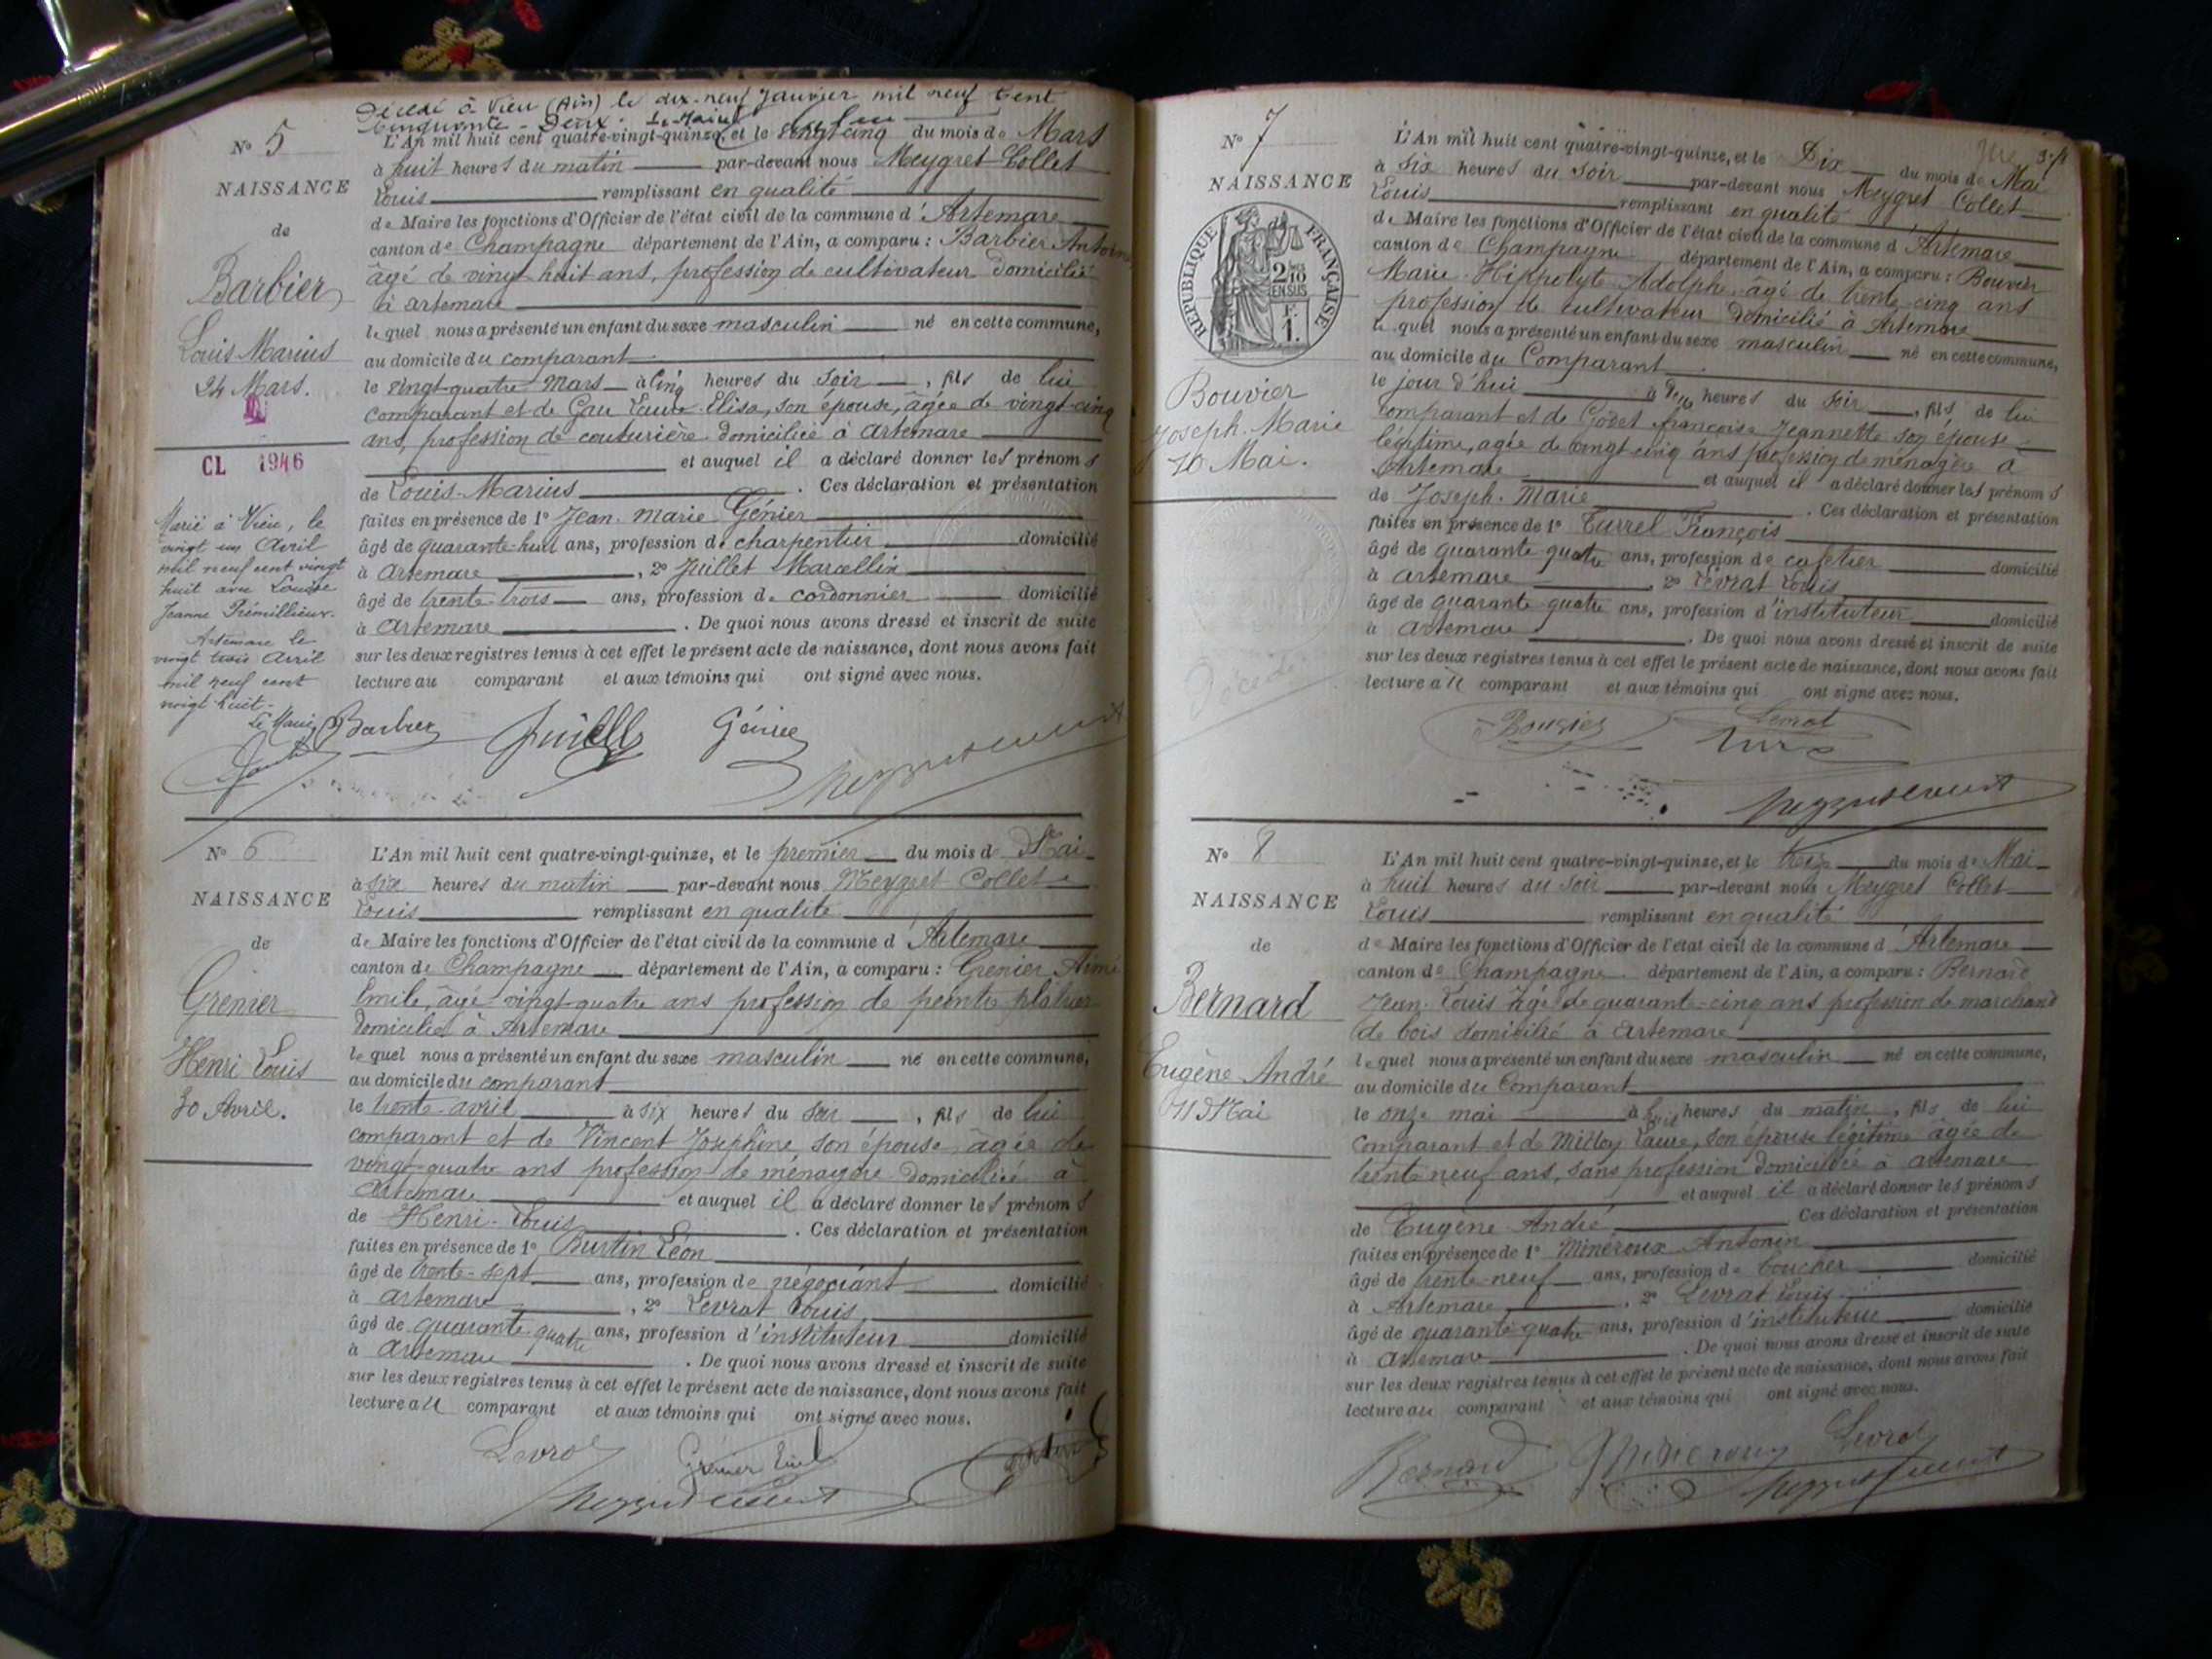 Décédé à Vieu (Ain) le dix-neuf Janvier mil neuf Cent
Cinquante-Deux. Le Maire
N° 5
NAISSANCE
de
Barbier
Louis Marius
24 Mars.
CL 1946
Marié à Vieu, le
vingt un Avril
mil neuf cent vingt
huit avec Louise
Jeanne Prémillieux.
Artemare le
vingt trois Avril
mil neuf cent
vingt huit.
Le Maire
L'An mil huit cent quatre-vingt-quinze, et le vingt cinq du mois de Mars
à huit heures du matin par-devant nous Meygret Collet
Louis remplissant en qualité
de Maire les fonctions d'Officier de l'état civil de la commune d'Artemare
canton de Champagne département de l'Ain, a comparu : Barbier Antoine
âgé de vingt huit ans, profession de cultivateur domicilié
à artemare
lequel nous a présenté un enfant du sexe masculin né en cette commune,
au domicile du comparant
le vingt-quatre Mars à cinq heures du soir, fils de lui
comparant et de Gau Laure Elisa, son épouse, âgée de vingt-cinq
ans, profession de couturière domiciliée à artemare
et auquel il a déclaré donner les prénoms
de Louis-Marius. Ces déclaration et présentation
faites en présence de 1° Jean-Marie Génier
âgé de quarante-huit ans, profession de charpentier domicilié
à artemare, 2° Juillet Marcellin
âgé de trente-trois ans, profession de cordonnier domicilié
à artemare. De quoi nous avons dressé et inscrit de suite
sur les deux registres tenus à cet effet le présent acte de naissance, dont nous avons fait
lecture au comparant et aux témoins qui ont signé avec nous.
Barbier Juillet Génier
N° 6
NAISSANCE
de
Grenier
Henri Louis
30 Avril.
L'An mil huit cent quatre-vingt-quinze, et le premier du mois de Mai
à six heures du matin par-devant nous Meygret Collet
Louis remplissant en qualité
de Maire les fonctions d'Officier de l'état civil de la commune d'Artemare
canton de Champagne département de l'Ain, a comparu : Grenier Aimé
Emile, âgé vingt-quatre ans profession de peintre plâtrier
domicilié à Artemare
lequel nous a présenté un enfant du sexe masculin né en cette commune,
au domicile du comparant
le trente avril à six heures du soir, fils de lui
comparant et de Vincent Joséphine, son épouse âgée de
vingt-quatre ans profession de ménagère domiciliée à
artemare et auquel il a déclaré donner les prénoms
de Henri-Louis. Ces déclaration et présentation
faites en présence de 1° Burtin Léon
âgé de trente-sept ans, profession de négociant domicilié
à artemare, 2° Levrat Louis
âgé de quarante quatre ans, profession d'instituteur domicilié
à artemare. De quoi nous avons dressé et inscrit de suite
sur les deux registres tenus à cet effet le présent acte de naissance, dont nous avons fait
lecture au comparant et aux témoins qui ont signé avec nous.
Levrat Grenier Emile
N° 7
NAISSANCE
RÉPUBLIQUE FRANÇAISE
2/10
EN SUS
F.
1.
Bouvier
Joseph-Marie
10 Mai.
Décédé
L'An mil huit cent quatre-vingt-quinze, et le Dix du mois de Mai
à six heures du soir par-devant nous Meygret Collet
Louis remplissant en qualité
de Maire les fonctions d'Officier de l'état civil de la commune d'Artemare
canton de Champagne département de l'Ain, a comparu : Bouvier
Marie-Hippolyte-Adolphe âgé de trente-cinq ans
profession de cultivateur domicilié à Artemare
lequel nous a présenté un enfant du sexe masculin né en cette commune,
au domicile du Comparant
le jour d'hui à deux heures du soir, fils de lui
comparant et de Godet françoise Jeannette son épouse
légitime, agée de vingt-cinq ans profession de ménagère à
Artemare et auquel il a déclaré donner les prénoms
de Joseph-Marie. Ces déclaration et présentation
faites en présence de 1° Turrel François
âgé de quarante quatre ans, profession de cafetier domicilié
à artemare, 2° Levrat Louis
âgé de quarante-quatre ans, profession d'instituteur domicilié
à artemare. De quoi nous avons dressé et inscrit de suite
sur les deux registres tenus à cet effet le présent acte de naissance, dont nous avons fait
lecture au comparant et aux témoins qui ont signé avec nous.
Bouvier Levrat
N° 8
NAISSANCE
de
Bernard
Eugène André
11 Mai
L'An mil huit cent quatre-vingt-quinze, et le treize du mois de Mai
à huit heures du soir par-devant nous Meygret Collet
Louis remplissant en qualité
de Maire les fonctions d'Officier de l'état civil de la commune d'Artemare
canton de Champagne département de l'Ain, a comparu : Bernard
Jean-Louis âgé de quarante-cinq ans profession de marchand
de bois domicilié à artemare
lequel nous a présenté un enfant du sexe masculin né en cette commune,
au domicile du Comparant
le onze mai à huit heures du matin, fils de lui
comparant et de Laure, son épouse légitime âgée de
trente neuf ans, sans profession domiciliée à artemare
et auquel il a déclaré donner les prénoms
de Eugène André Ces déclaration et présentation
faites en présence de 1° Minéroux Antonin
âgé de trente-neuf ans, profession de boucher domicilié
à Artemare, 2° Levrat Louis
âgé de quarante quatre ans, profession d'instituteur domicilié
à artemare. De quoi nous avons dressé et inscrit de suite
sur les deux registres tenus à cet effet le présent acte de naissance, dont nous avons fait
lecture au comparant et aux témoins qui ont signé avec nous.
Bernard Levrat